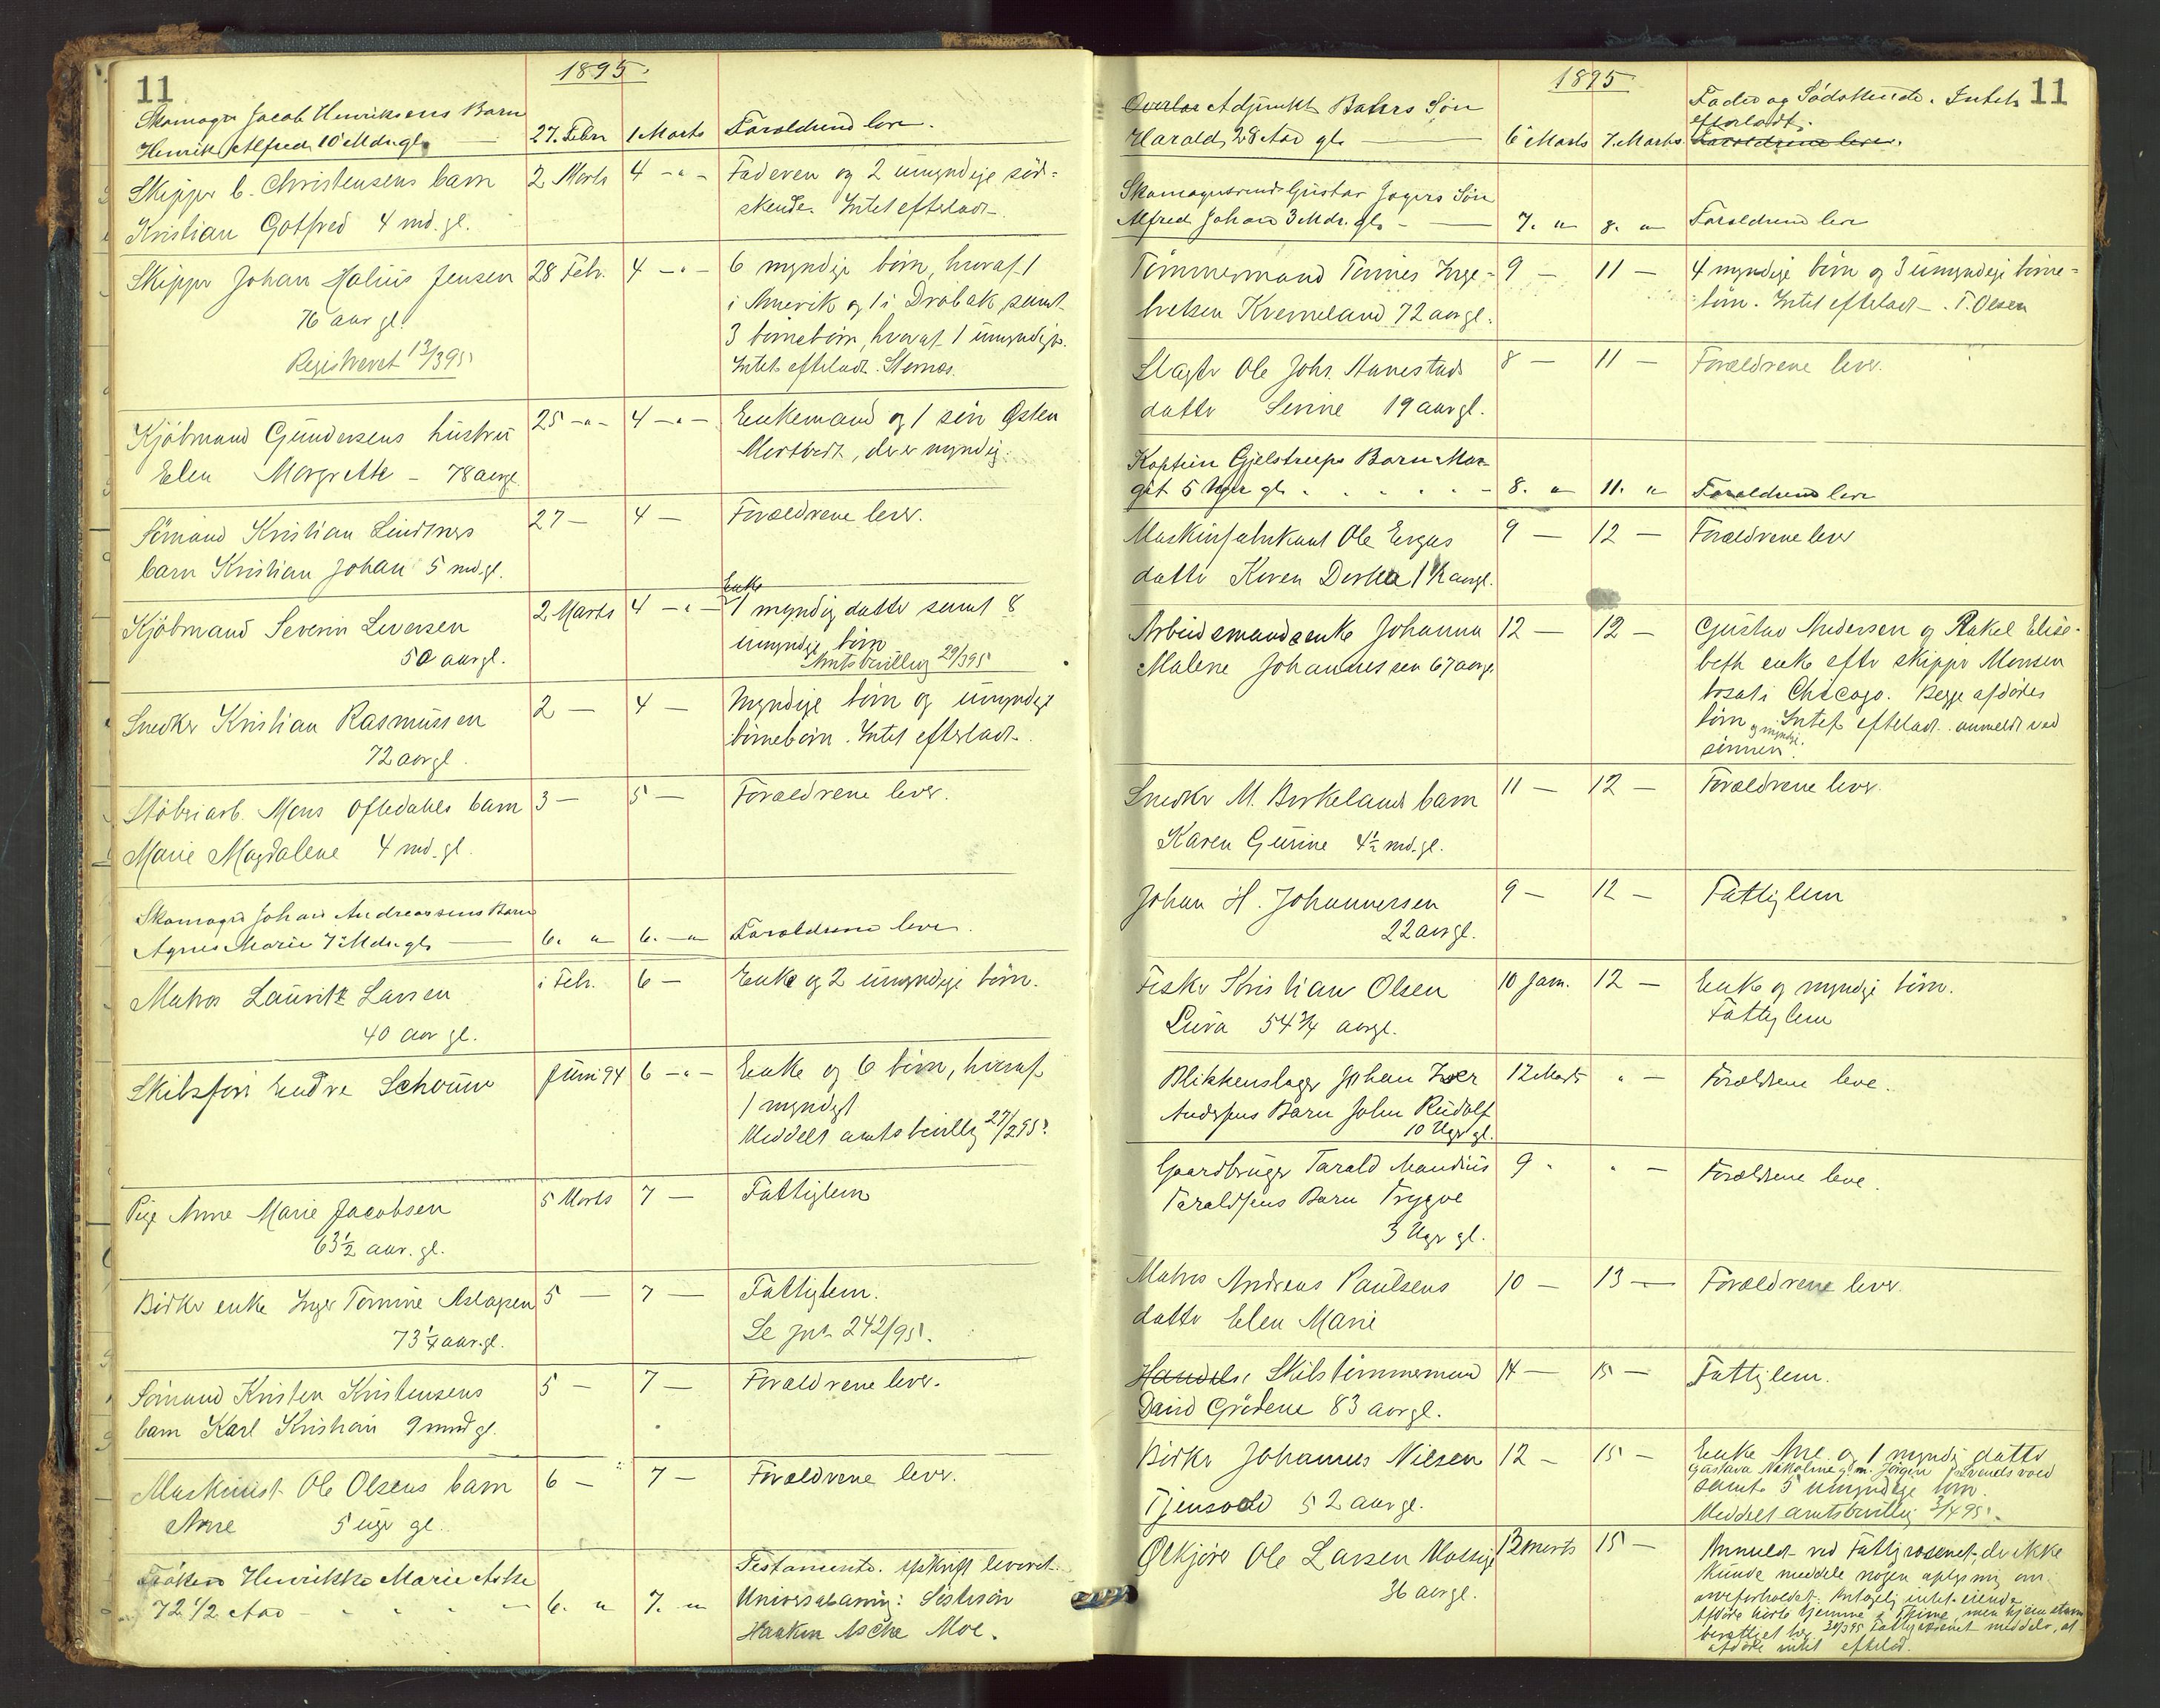 11
1895.
Skomager Jacob Henriksens Barn
Henrik Alfred 10 Mdr. gl. 27. Febr 1 Marts Forældrene leve.
Skipper C. Christensens barn 2 Marts 4 - " - Faderen og 2 umyndige sød-
Kristian Gotfred 4 md. gl. skende. Intet efterladt.
Skipper Johan Halius Jensen 28 Febr. 4 - " - 6 myndige børn, hvoraf 1
76 aar gl. i Amerik og 1 i Drøbak, samt
3 børnebørn, hvoraf 1 umyndigt.
Registreret 13/3 95 Intet efterladt.
Kjøbmand Gundersens hustru 25 - " - 4 - " - Enkemand og 1 søn Østen
Elen Margrethe - 78 aargl. , der er myndig.
Sømand Kristian Lindtners 27 - 4 - Forældrene lever.
barn Kristian Johan 5 md. gl.
Enke
Kjøbmand Severin Iversen 2 Marts 4 - " - 1 myndig datter samt 8
50 aar gl. umyndige børn
Amtsbevilling 29/3 95
Snedker Kristian Rasmussen 2 - 4 - Myndige børn og umyndige
72 aargl. børnebørn. Intet efterladt.
Støberiarb. Mons Oftedahls barn 3 - 5 - Forældrene lever.
Marie Magdalene 4 md. gl.
Skomager Johan Andreassens Barn
Agnes Marie 7 Mdr. gl. 6. " 6. - " Forældrene leve.
Matros Lauritz Larsen i Febr. 6 - Enke og 2 umyndige børn.
40 aar gl.
Skibsfører Endre Schouw Juni 94 6 - " - Enke og 6 børn, hvoraf
1 myndigt
Meddelt amtsbevilling 27/2 95.
Pige Anne Marie Jacobsen 5 Marts 7 - Fattiglem
63 1/2 aar. gl.
Bødker enke Inger Tomine Aslaksen 5 - 7 - Fattiglem.
73 1/4 aar. gl. Se jn. 242/95.
Sømand Kristen Kristensens 5 - 7 - Forældrene lever.
barn Karl Kristian 9 mnd gl.
Maskinist Ole Olsens barn 6 - 7 - Forældrene lever.
Arne 5 uger gl.
Frøken Henrikke Marie Aske Testamente. Afskrift leveret.
72 1/2 Aar 6. " 7. " Universalarving: Søstersøn
Haakon Asche Moe.
1895 11
Adjunkt Søn Fader og Sødskende. Intet
efterladt.
Harald, 28 Aar gl. 6 Marts 7. Marts Forældrene leve.
Skomagersvend Gustav Jagers Søn
Alfred Johan 3 Mdr. gl. 7. " 8. " Forældrene leve
Tømmermand Tønnes Inge- 9 - 11 - 4 myndige børn og 3 umyndige børne-
bretsen Kverneland 72 aargl. børn. Intet efterladt. T. Olsen
Slagter Ole Johs. Aanestads 8 - 11 - Forældrene lever.
datter Serine 19 aargl.
Kaptein Gjelstrups Barn Mar-
git 5 Uger gl. 8. " 11. " Forældrene leve
Maskinfabrikant Ole Ergas 9 - 12 - Forældrene lever
datter Karen Dorthea 1 1/2 aargl.
Arbeidsmandsenke Johanna 12 - 12 - Gustav Andersen og Rakel Elisa-
Malene Johannessen 67 aargl beth enke efter skipper Monsen
bosat i Chicago. Begge afdødes
børn og myndige. Intet efterladt. anmeldt ved
sønnen.
Snedker M. Birkelands barn 11 - 12 - Forældrene lever.
Karen Gurine 4 1/2 md. gl.
Johan H. Johannessen 9 - 12 - Fattiglem
22 aar gl.
Fisker Kristian Olsen 10 Jan. 12 - Enke og myndige børn.
Lura 54 3/4 aargl. Fattiglem
Blikkenslager Johan Iver 12 Marts " - Forældrene leve.
Andersens Barn John Rudolf
10 Uger gl.
Gaardbruger Tarald Mandius 9 - " - Forældrene leve.
Taraldsens Barn Trygve
3 Uger gl.
Matros Andreas Paulsens 10 - 13 - Forældrene lever.
datter Elen Marie
Handels. Skibstømmermand 14 - 15 - Fattiglem.
David Grødene 83 aargl.
Bødker Johannes Nielsen 12 - 15 - Enke Ane og 1 myndig datter
Tjensvold 52 aargl. samt 5 umyndige børn.
Meddelt amtsbevilling 3/4 95.
Ølkjører Ole Larsen 13 marts 15 - Anmeldt ved Fattigvæsenet, der ikke
36 aargl. kunde meddele nogen oplysning om
arveforholdet. Antagelig intet eiende
Afdøde hørte hjemme i Thime, men hjemstavns-
berettiget her. 30/3 95 Fattigvæsenet meddeler, at
afdøde intet efterlod.